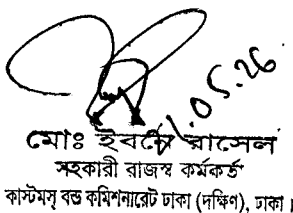 .05.26
মোঃ ইবনে রাসেল
সহকারী রাজস্ব কর্মকর্তা
কাস্টমস্ বন্ড কমিশনারেট ঢাকা (দক্ষিণ), ঢাকা।